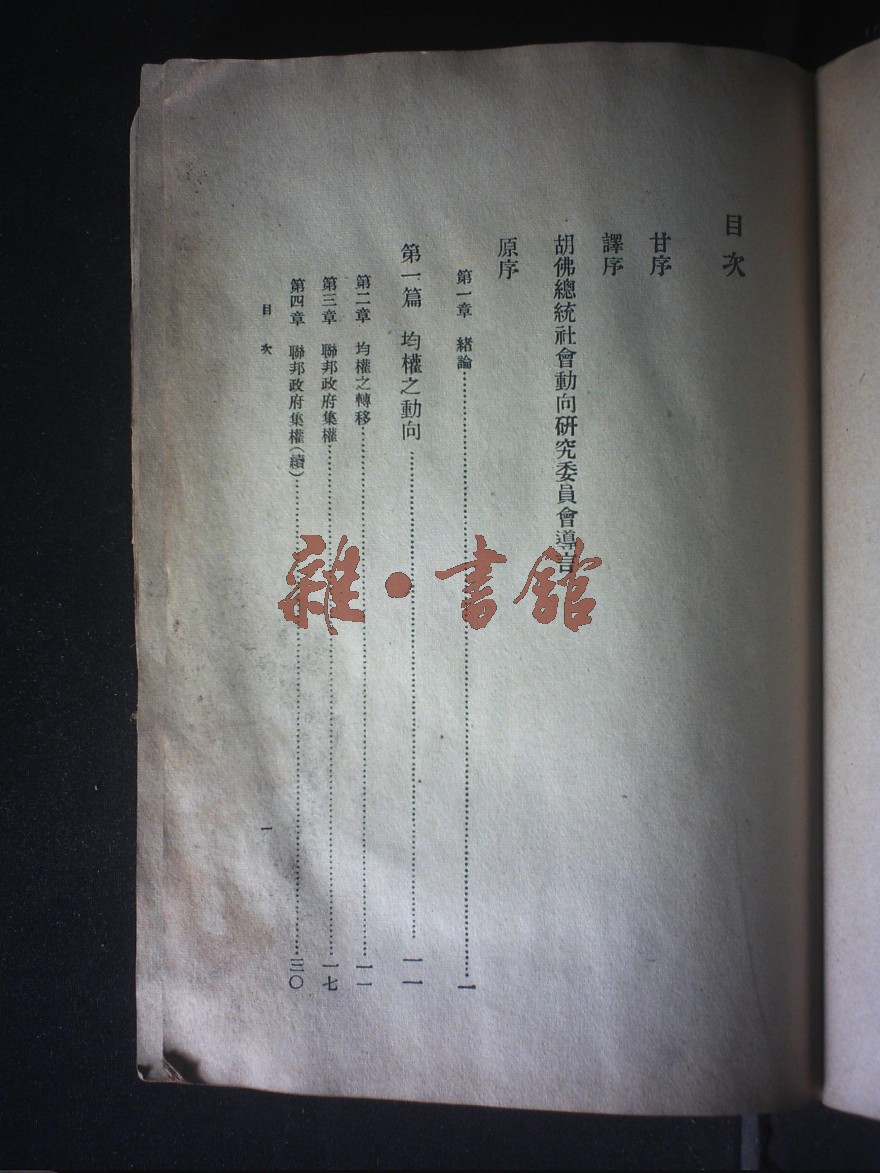 目次
甘序
譯序
胡佛總統社會動向研究委員會導言
原序
第一章　緒論…………一
第一篇　均權之動向…………一一
第二章　均權之轉移…………一一
第三章　聯邦政府集權…………一七
第四章　聯邦政府集權(續)…………三〇
目次　一
雜·書館